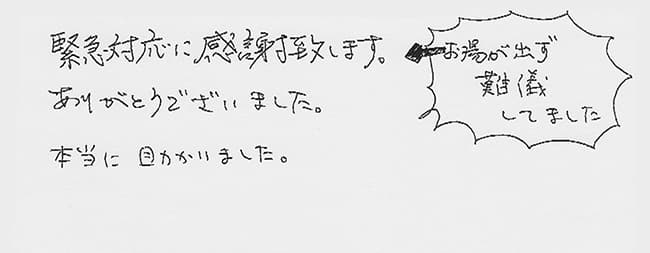 緊急対応に感謝致します。
ありがとうございました。
本当に助かいました。
お湯が出ず
難儀
してました